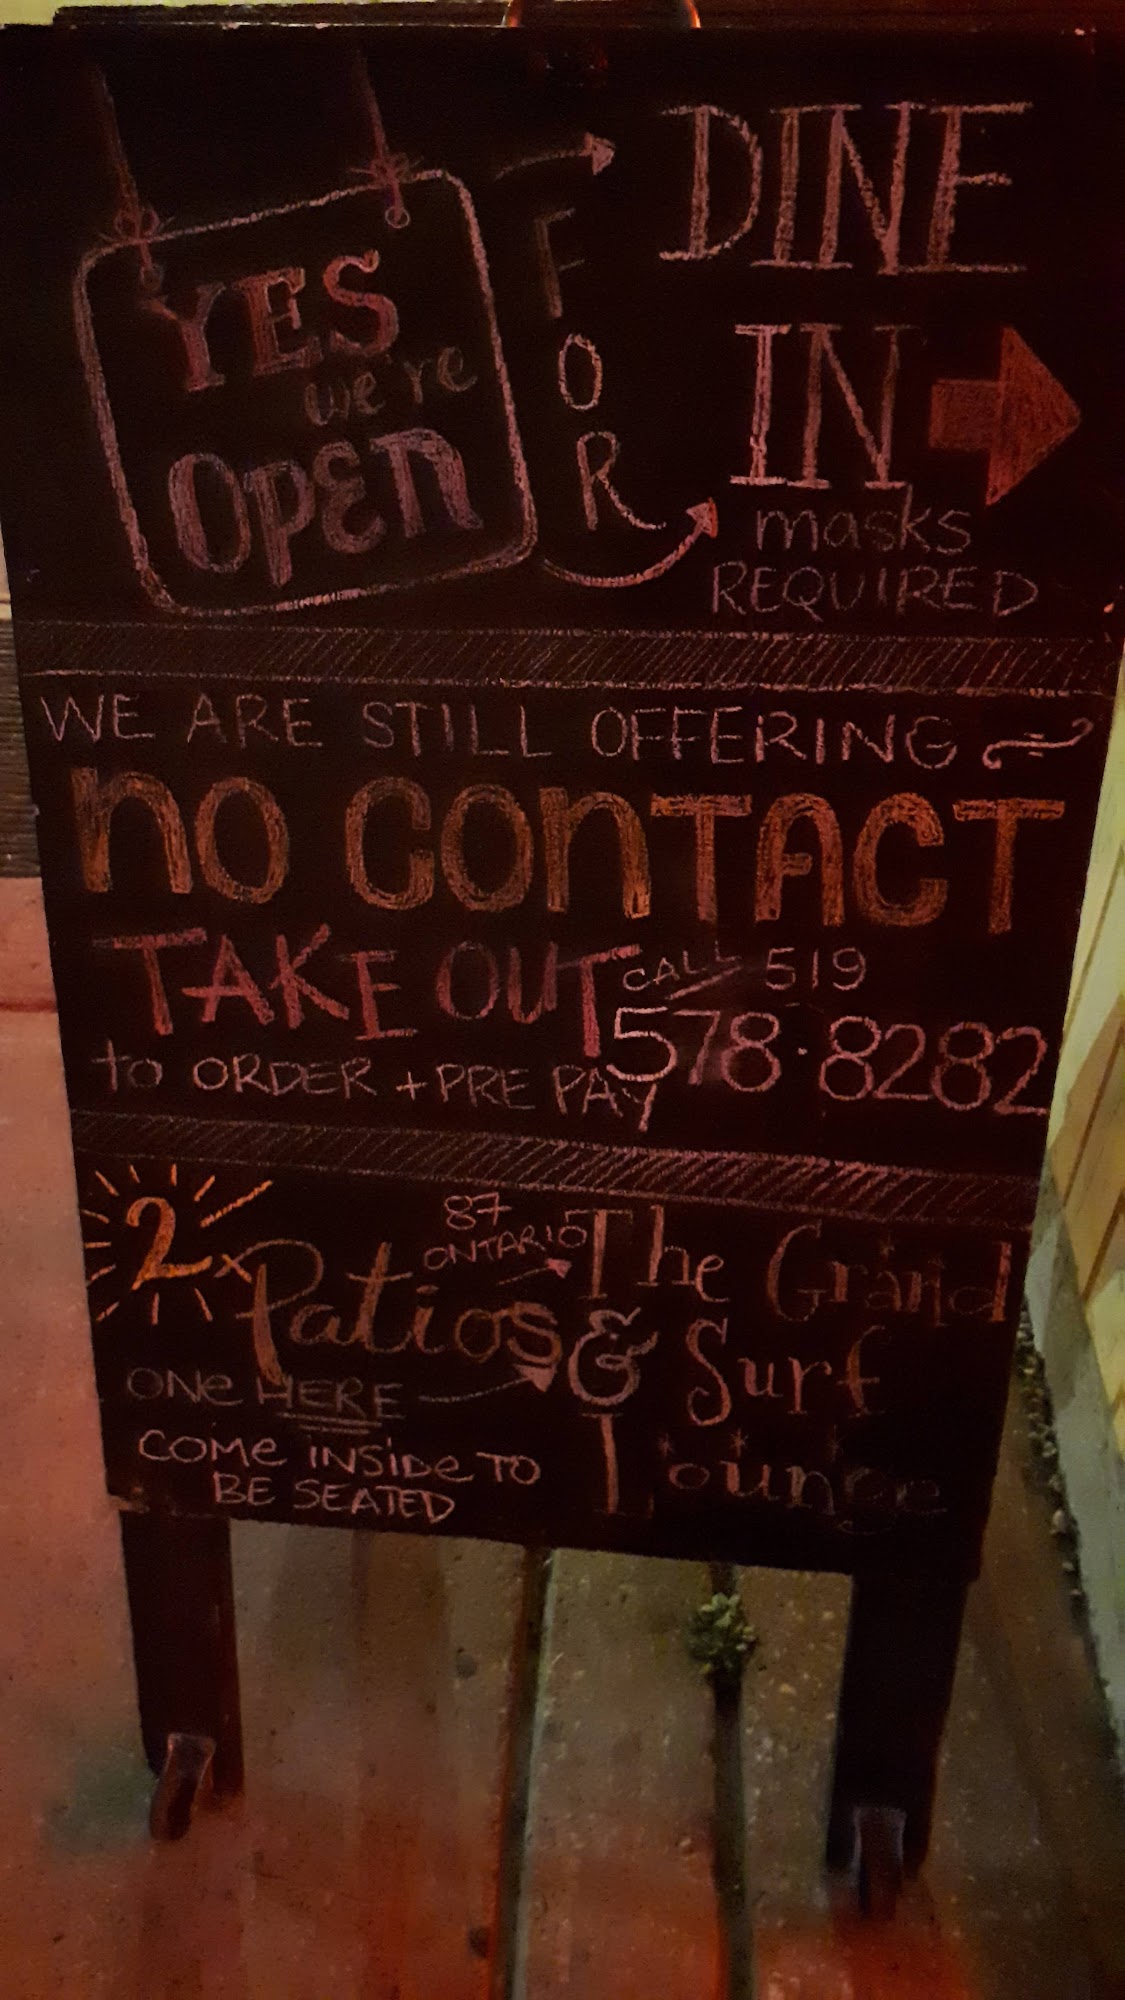 YES
we're
OPEN
FOR
DINE
IN
masks
REQUIRED
WE ARE STILL OFFERING
NO CONTACT
TAKE OUT
CALL 519
578·8282
to ORDER + PRE PAY
2x Patios
87
ONTARIO
The Grand
& Surf
Lounge
ONE HERE
COME INSIDE TO
BE SEATED